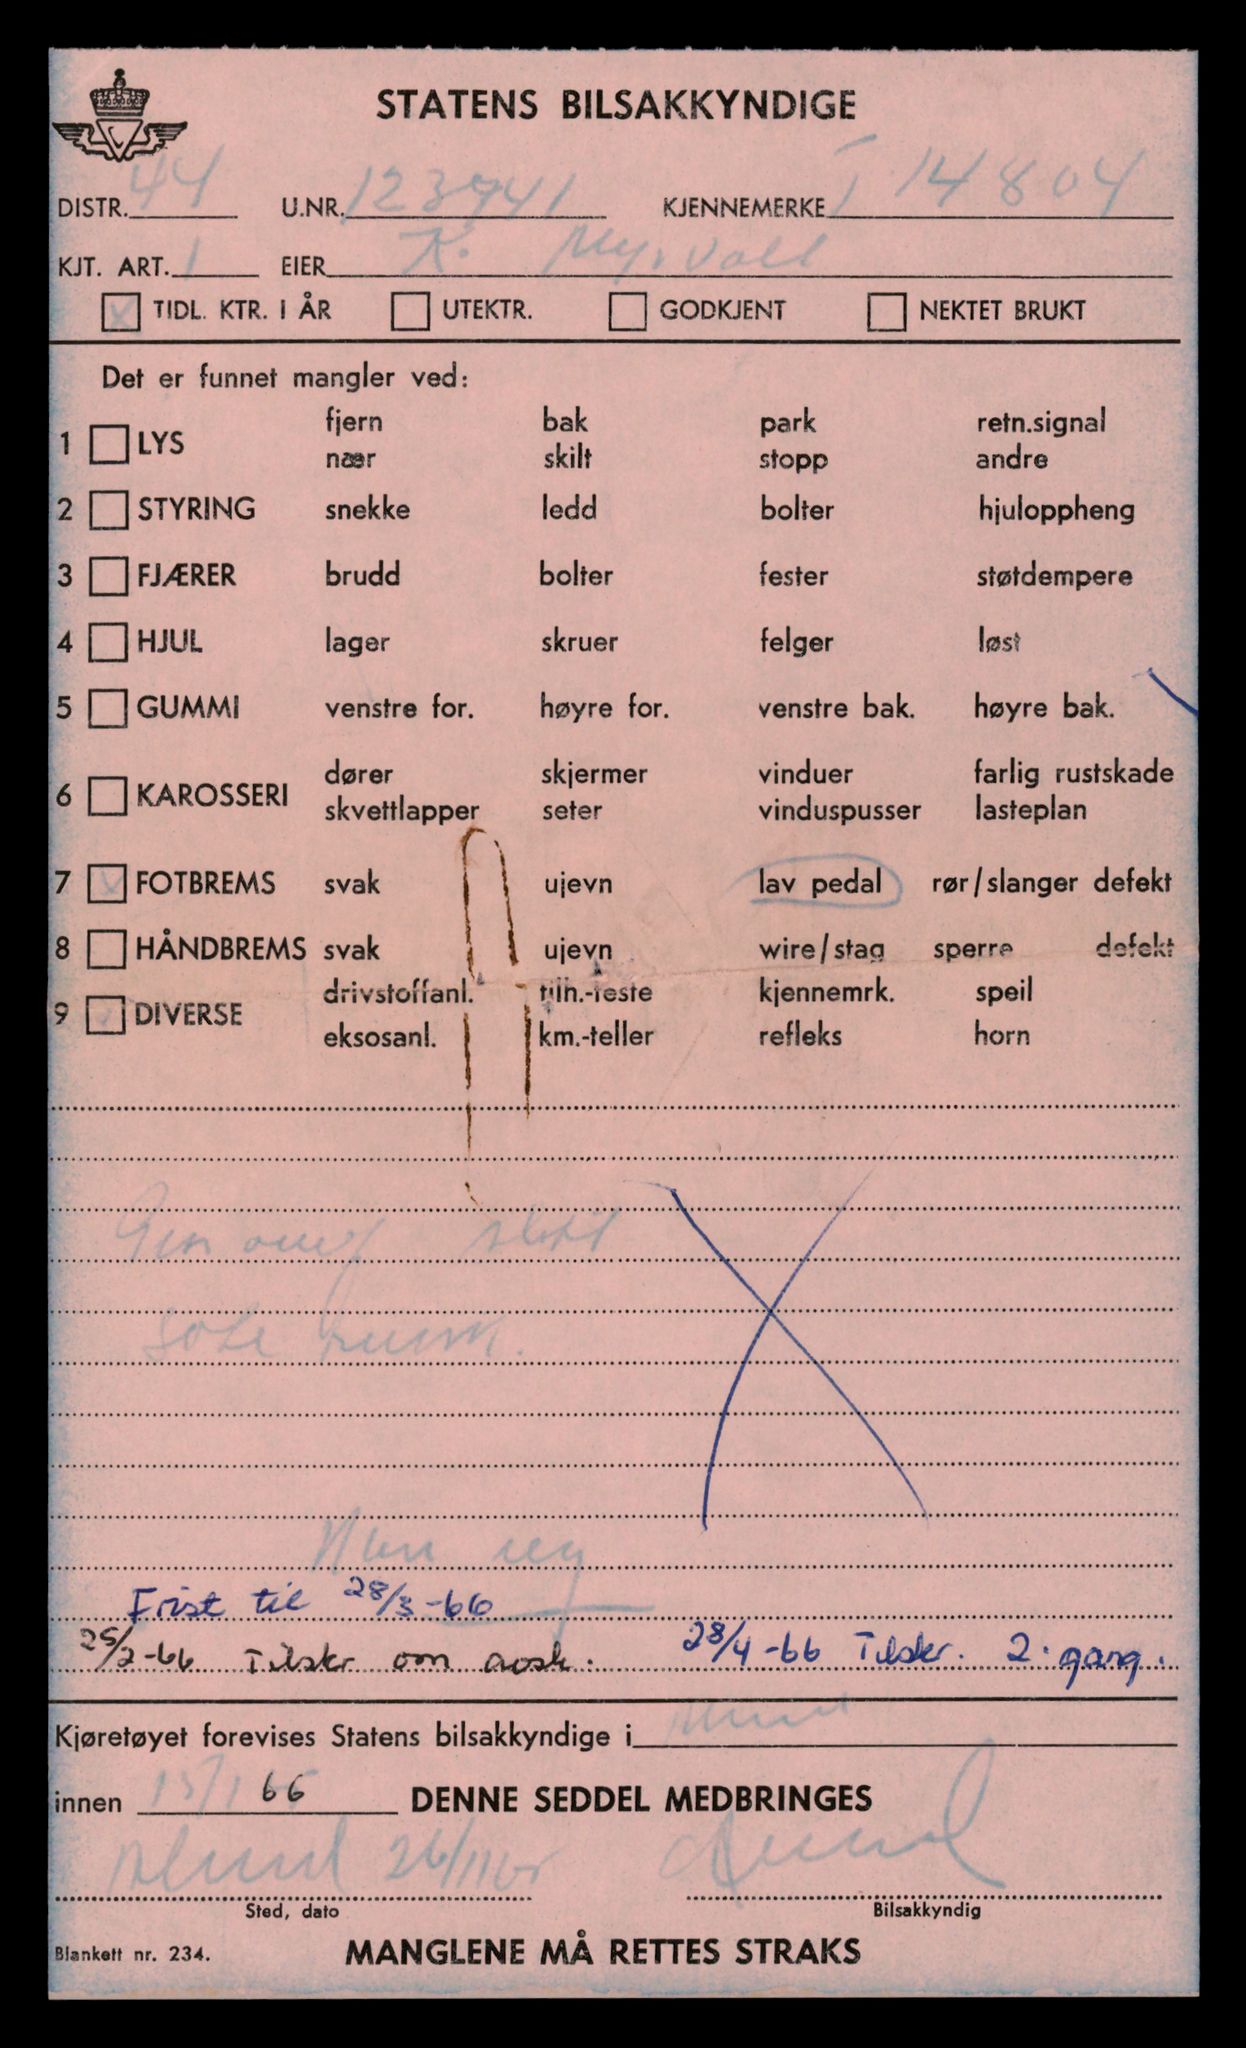 STATENS BILSAKKYNDIGE
DISTR. 44 U.NR. 123941 KJENNEMERKE T 14804
KJT. ART. 1 EIER K. Myrvoll
TIDL. KTR. I ÅR UTEKTR. GODKJENT NEKTET BRUKT
Det er funnet mangler ved:
fjern bak park retn.signal
1 LYS
nær skilt stopp andre
2 STYRING snekke ledd bolter hjuloppheng
3 FJÆRER brudd bolter fester støtdempere
4 HJUL lager skruer felger løst
5 GUMMI venstre for. høyre for. venstre bak. høyre bak.
dører skjermer vinduer farlig rustskade
6 KAROSSERI
skvettlapper seter vinduspusser lasteplan
7 FOTBREMS svak ujevn lav pedal rør/slanger defekt
8 HÅNDBREMS svak ujevn wire/stag sperre defekt
drivstoffanl. tilh.-feste kjennemrk. speil
9 DIVERSE
eksosanl. km.-teller refleks horn
Frist til 28/3-66
25/2-66 Tilskr om avsk. 28/4-66 Tilskr. 2. gang.
Kjøretøyet forevises Statens bilsakkyndige i
innen 15/1 66 DENNE SEDDEL MEDBRINGES
26/11 65
Sted, dato Bilsakkyndig
Blankett nr. 234. MANGLENE MÅ RETTES STRAKS